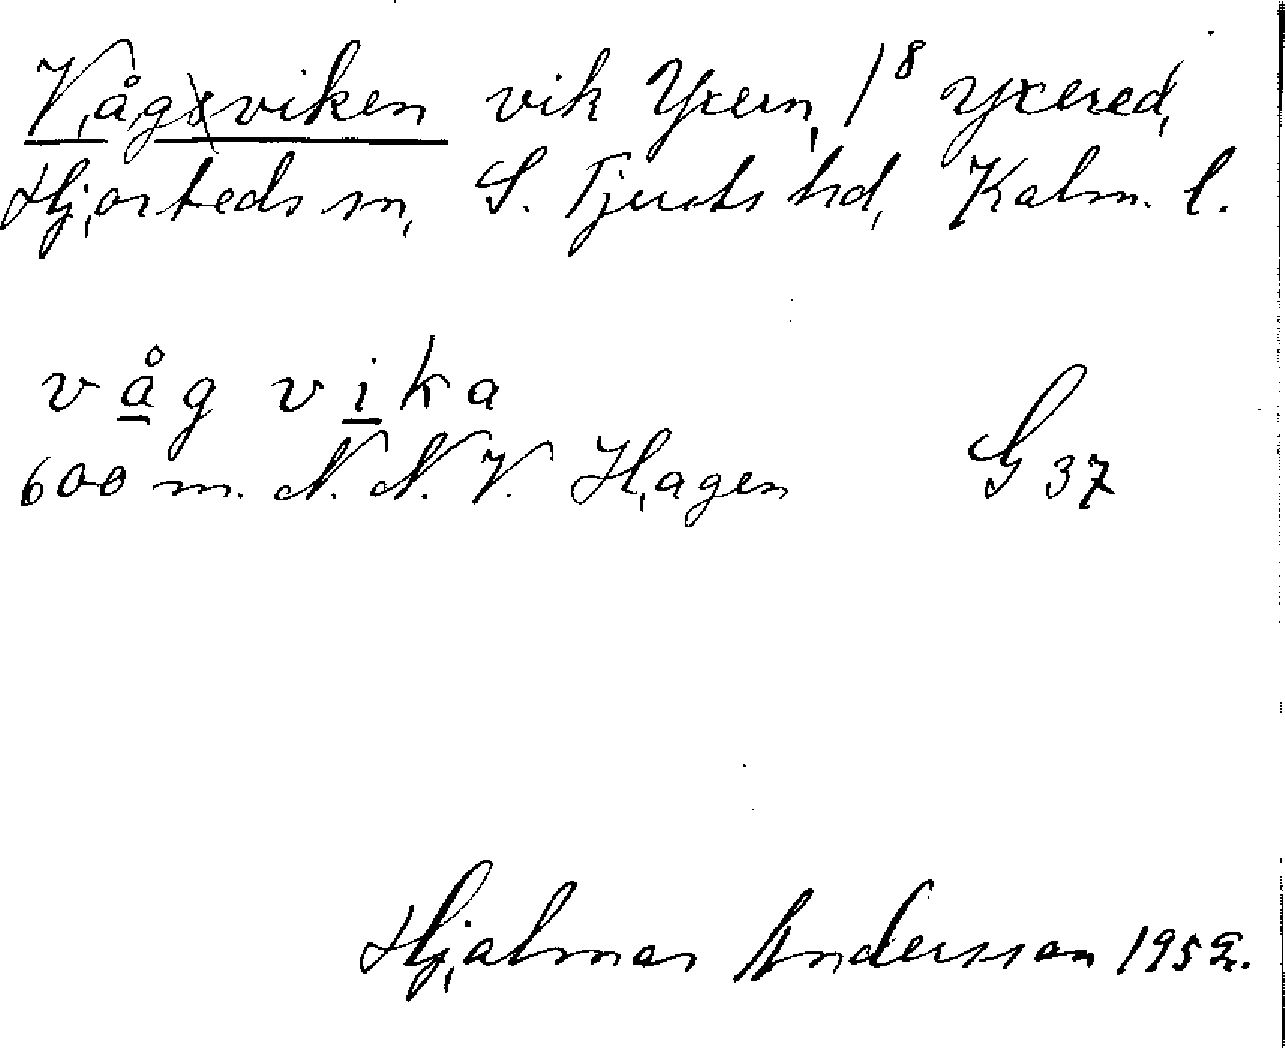 Vågviken vik Yxern, 1⁸ Yxered,
Hjorteds sn, S. Tjusts hd, Kalm. l.
våg vika
600 m. N. N. V. Hagen G 37
Hjalmar Andersson 1952.